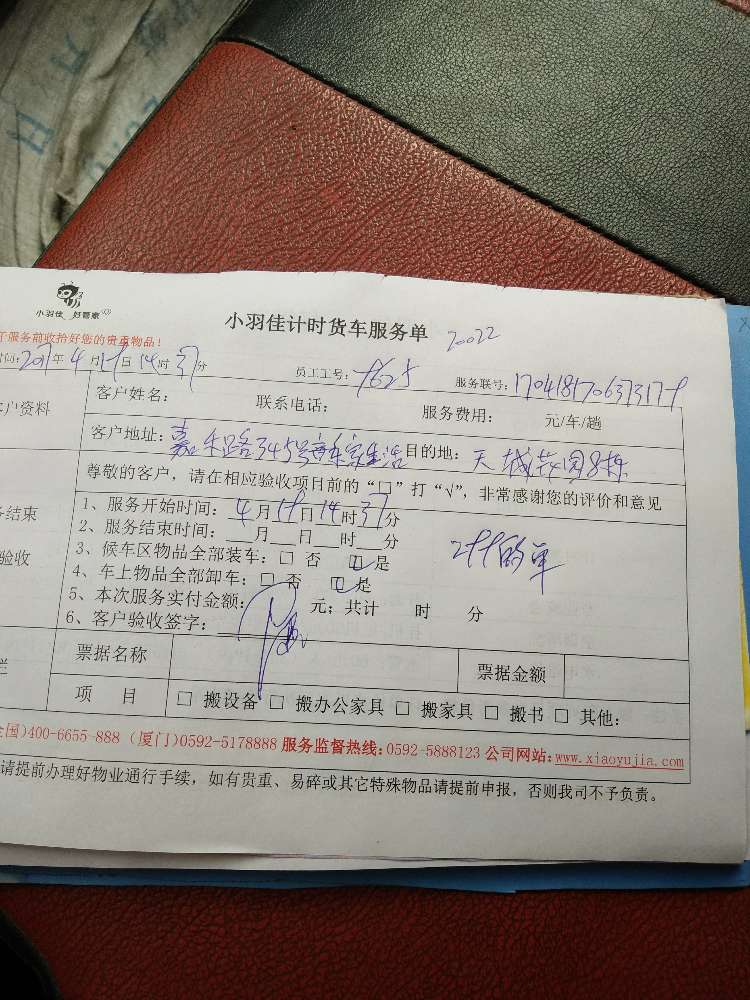 小羽佳 好管家
小羽佳计时货车服务单 20022
服务前收拾好您的贵重物品！
间：2017年4月19日14时37分 员工工号： 服务联号：
户资料 客户姓名： 联系电话： 服务费用： 元/车/趟
客户地址：嘉禾路345号 生活 目的地：天城花园8栋
尊敬的客户，请在相应验收项目前的“□”打“√”，非常感谢您的评价和意见
结束
验收
1、服务开始时间：4月19日14时37分
2、服务结束时间：__月__日__时__分
3、候车区物品全部装车：□ 否 □是
4、车上物品全部卸车：□ 否 □是
的单
5、本次服务实付金额： 元；共计 时 分
6、客户验收签字：
栏 票据名称 票据金额
项 目 □ 搬设备 □ 搬办公家具 □ 搬家具 □ 搬书 □ 其他：
全国)400-6655-888 (厦门)0592-5178888 服务监督热线：0592-5888123 公司网站：www.xiaoyujia.com
请提前办理好物业通行手续，如有贵重、易碎或其它特殊物品请提前申报，否则我司不予负责。